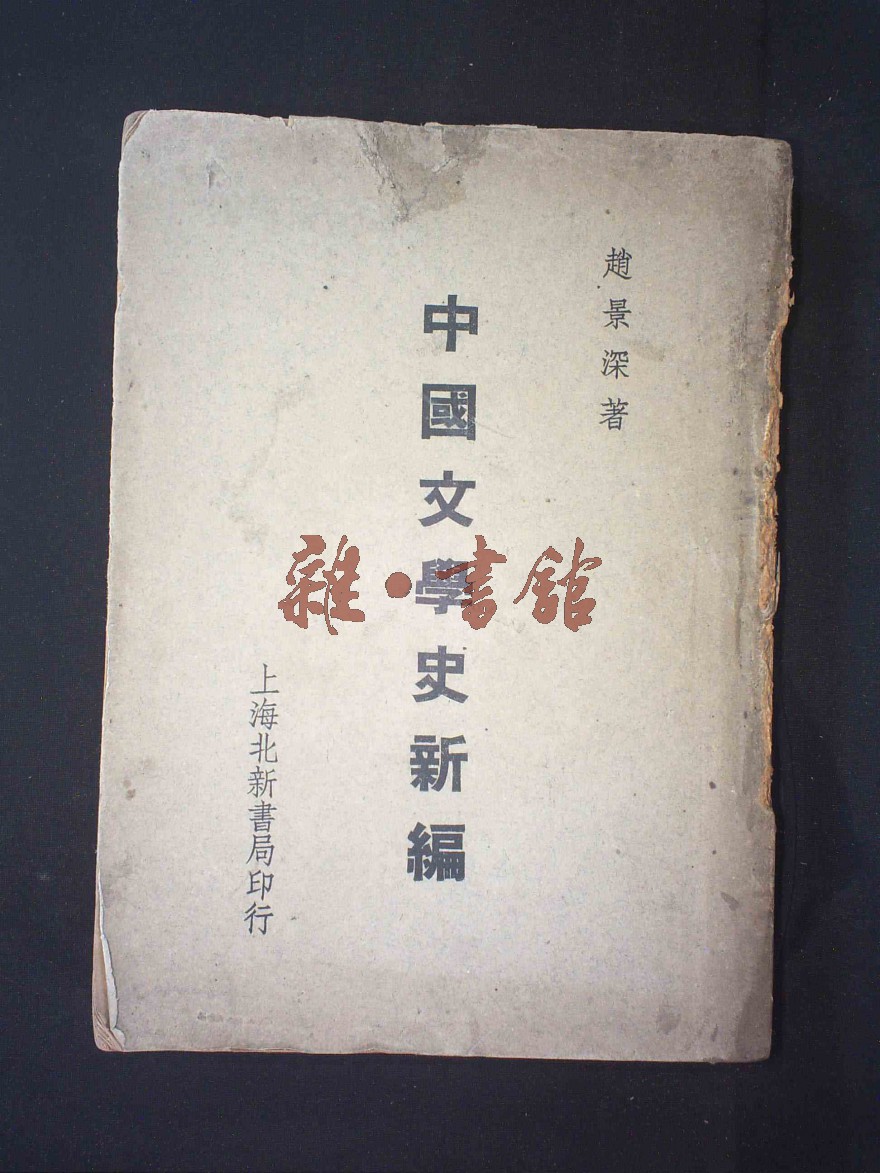 趙景深著
中國文學史新編
上海北新書局印行
雜·書館